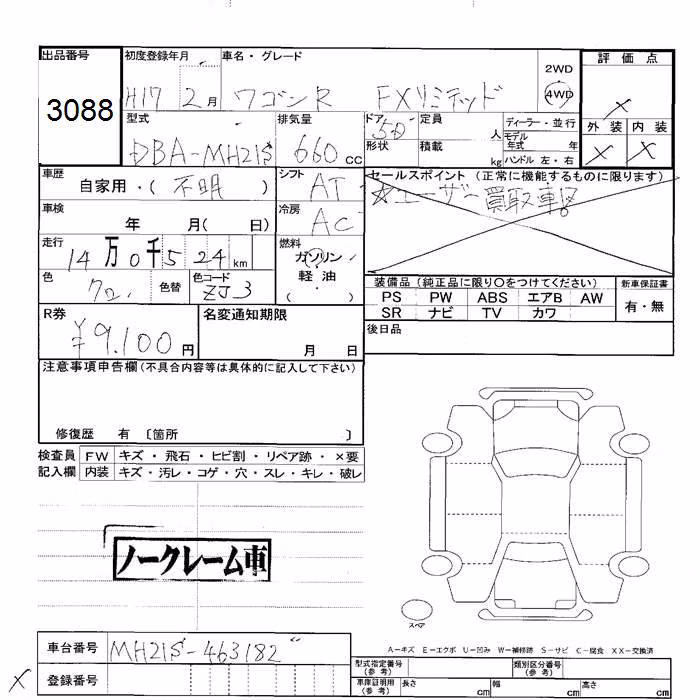 出品番号 初度登録年月 車名・グレード 評価点
3088 H17 2月 ワゴンR FXリミテッド 2WD 4WD
X
型式 排気量 ドア 定員 ディーラー・並行 外装 内装
DBA-MH21S 660cc 5D 人 モデル年式 年 X X
形状 積載 kg ハンドル 左・右
車歴 シフト セールスポイント (正常に機能するものに限ります)
自家用・(不明) AT ☆ユーザー買取車
車検 冷房
年 月(日) AC
走行 燃料
14万0千524km ガソリン
色 色替 色コード 軽油
ZJ3 ( )
装備品 (純正品に限り〇をつけてください) 新車保証書
PS PW ABS エアB AW 有・無
SR ナビ TV カワ
R券 名変通知期限 後日品
¥9,100円 月 日
注意事項申告欄(不具合内容等は具体的に記入して下さい)
修復歴 有 〔箇所 〕
検査員 FW キズ・飛石・ヒビ割・リペア跡・×要
記入欄 内装 キズ・汚レ・コゲ・穴・スレ・キレ・破レ
ノークレーム車
スペア
A-キズ E-エクボ U-凹み W-補修跡 S-サビ C-腐食 XX-交換済
車台番号 MH21S-463182
型式指定番号(参考) 類別区分番号(参考)
X 登録番号
車庫証明用(参考) 長さ cm 幅 cm 高さ cm